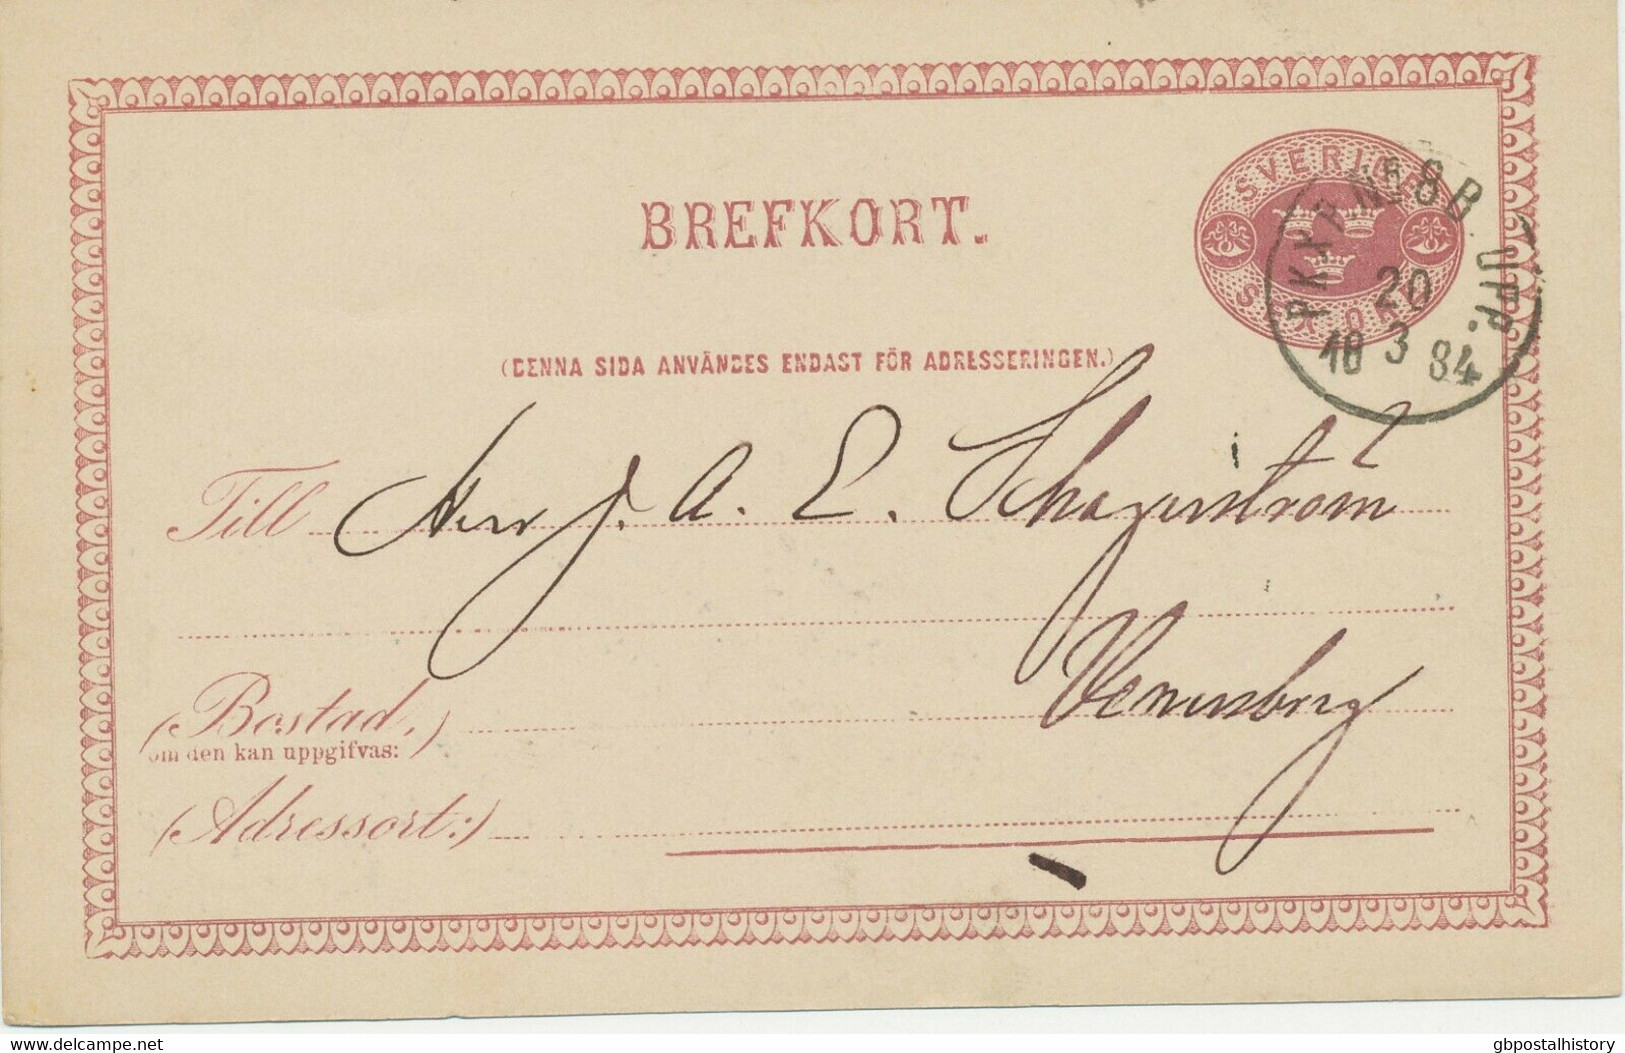 SVERIGE
SEX ÖRE
PKXP Nº 58 B. UPP.
20
18 3 84
BREFKORT.
(DENNA SIDA ANVÄNDES ENDAST FÖR ADRESSERINGEN.)
Till Herr J. A. E. Schagerström
(Bostad,)
om den kan uppgifvas:
Venersborg
(Adressort:)
www.delcampe.net
gbpostalhistory